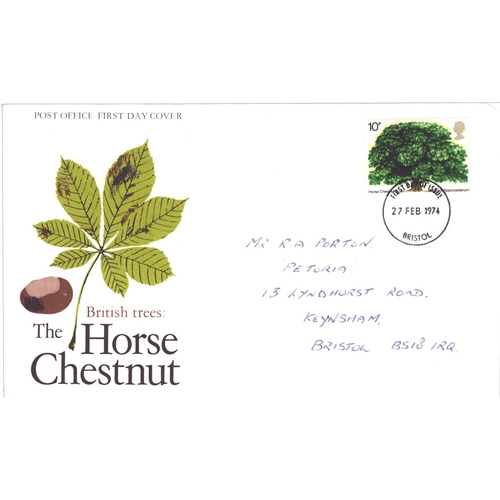 POST OFFICE FIRST DAY COVER
10P
Horse Chestnut
FIRST DAY OF ISSUE
27 FEB 1974
BRISTOL
MR R A PORTON
'PETORIA'
13 LYNDHURST ROAD,
KEYNSHAM,
BRISTOL BS18 1RQ.
British trees:
The Horse
Chestnut